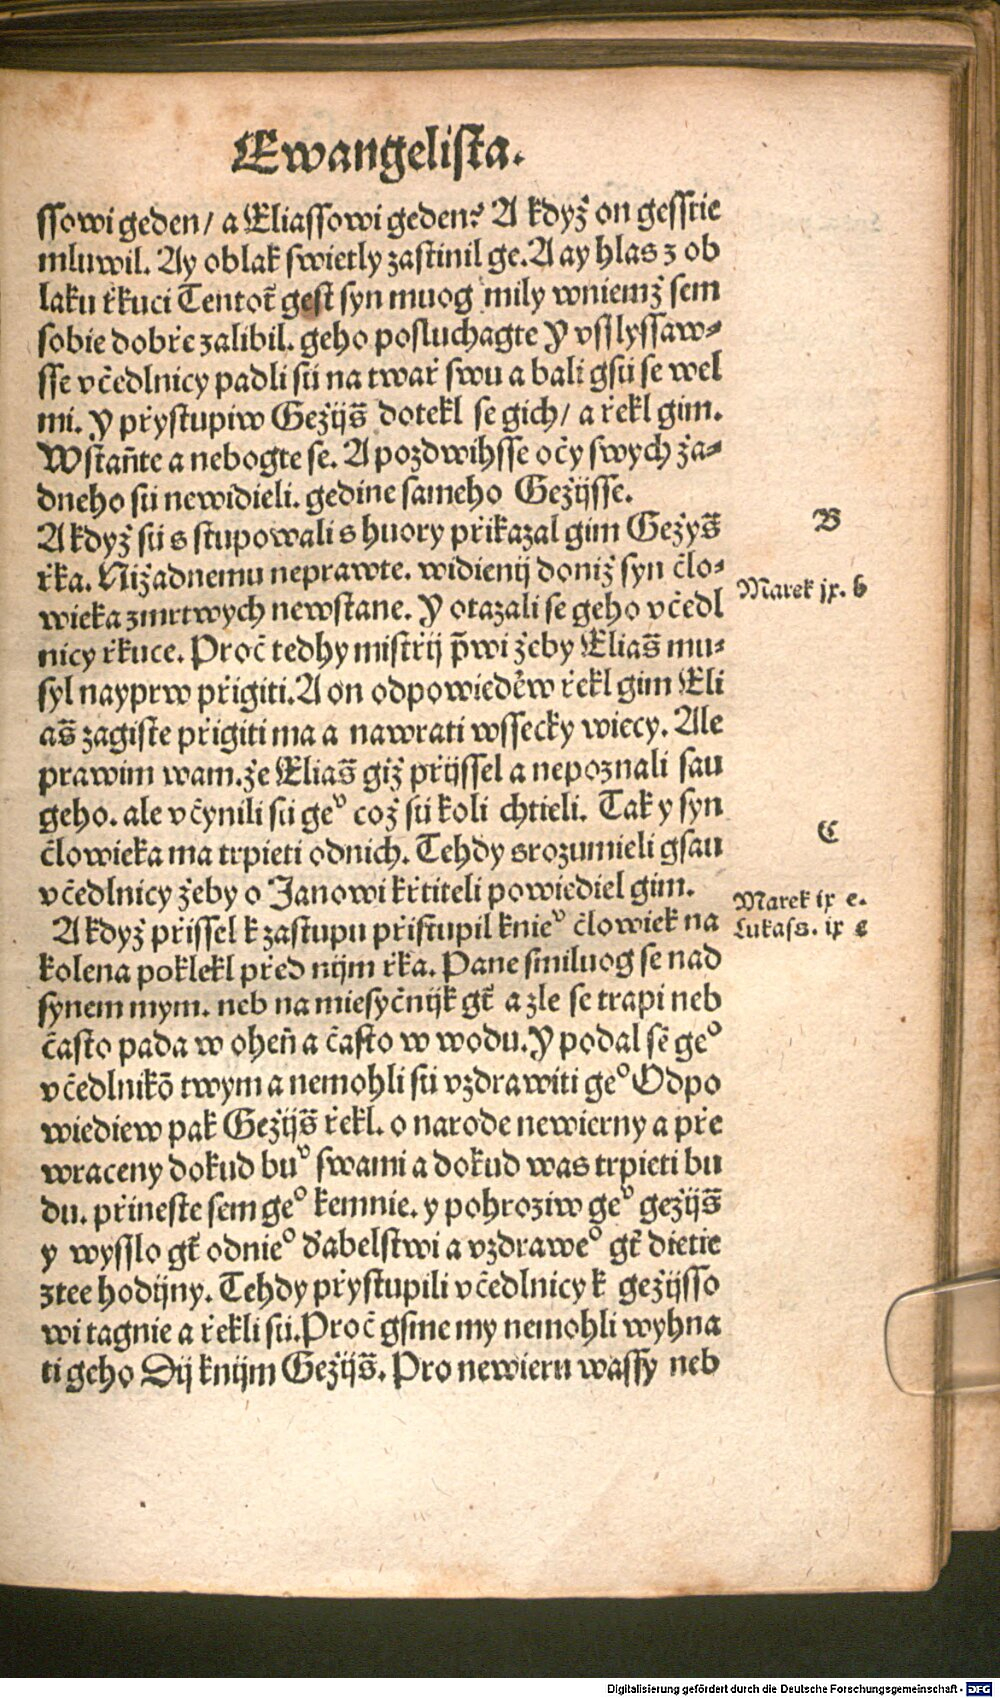 Ewangelista.
ssowi geden/ a Eliassowi geden? A když on gesstie
mluwil. Ay oblak swietly zastinil ge. A ay hlas z ob
laku řkuci Tentoť gest syn muog mily wniemž sem
sobie dobře zalibil. geho posluchagte Y vsslyssaw⸗
sse včedlnicy padli sú na twař swu a bali gsú se wel
mi. Y přystupiw Gežijs̃ dotekl se gich/ a řekl gim.
Wstaňte a nebogte se. A pozdwihsse očy swych ža⸗
dneho sú newidieli. gedine sameho Gežijsse.
A když sú s stupowali s huory přikazal gim Gežys̃
řka. Nižadnemu neprawte. widienij doniž syn člo⸗
wieka zmrtwych newstane. Y otazali se geho včedl
nicy řkuce. Proč tedhy mistřij p̄wi žeby Elias̃ mu⸗
syl nayprw přigiti. A on odpowieděw řekl gim Eli
as̃ zagiste přigiti ma a nawrati wssecky wiecy. Ale
prawim wam. že Elias̃ giž přijssel a nepoznali sau
geho. ale včynili sú geͮ což sú koli chtieli. Tak y syn
človieka ma trpieti odnich. Tehdy srozumieli gsau
včedlnicy žeby o Janowi křtiteli powiediel gim.
A když přissel k zastupu přistupil knieͮ človiek na
kolena poklekl před nijm řka. Pane smiluog se nad
synem mym. neb na miesyčnijk gt̃ a zle se trapi neb
často pada w oheň a často w wodu. Y podal sẽ geͦ
včedlnikō twym a nemohli sú vzdrawiti geͦ Odpo
wiediew pak Gežijs̃ řekl. o narode newierny a pře
wraceny dokud buͮ swami a dokud was trpieti bu
du. přineste sem geͦ kemnie. y pohroziw geͮ gežijs̃
y wysslo gt̃ odnieͦ ďabelstwi a vzdraweͦ gt̃ dietie
ztee hodijny. Tehdy přystupili včedlnicy k gežijsso
wi tagnie a řekli sú. Proč gsme my nemohli wyhna
ti geho Dij knijm Gežijs̃. Pro newieru wassy neb
B
Marek ix. b
C
Marek ix c.
Lukass. ix e
Digitalisierung gefördert durch die Deutsche Forschungsgemeinschaft - DFG